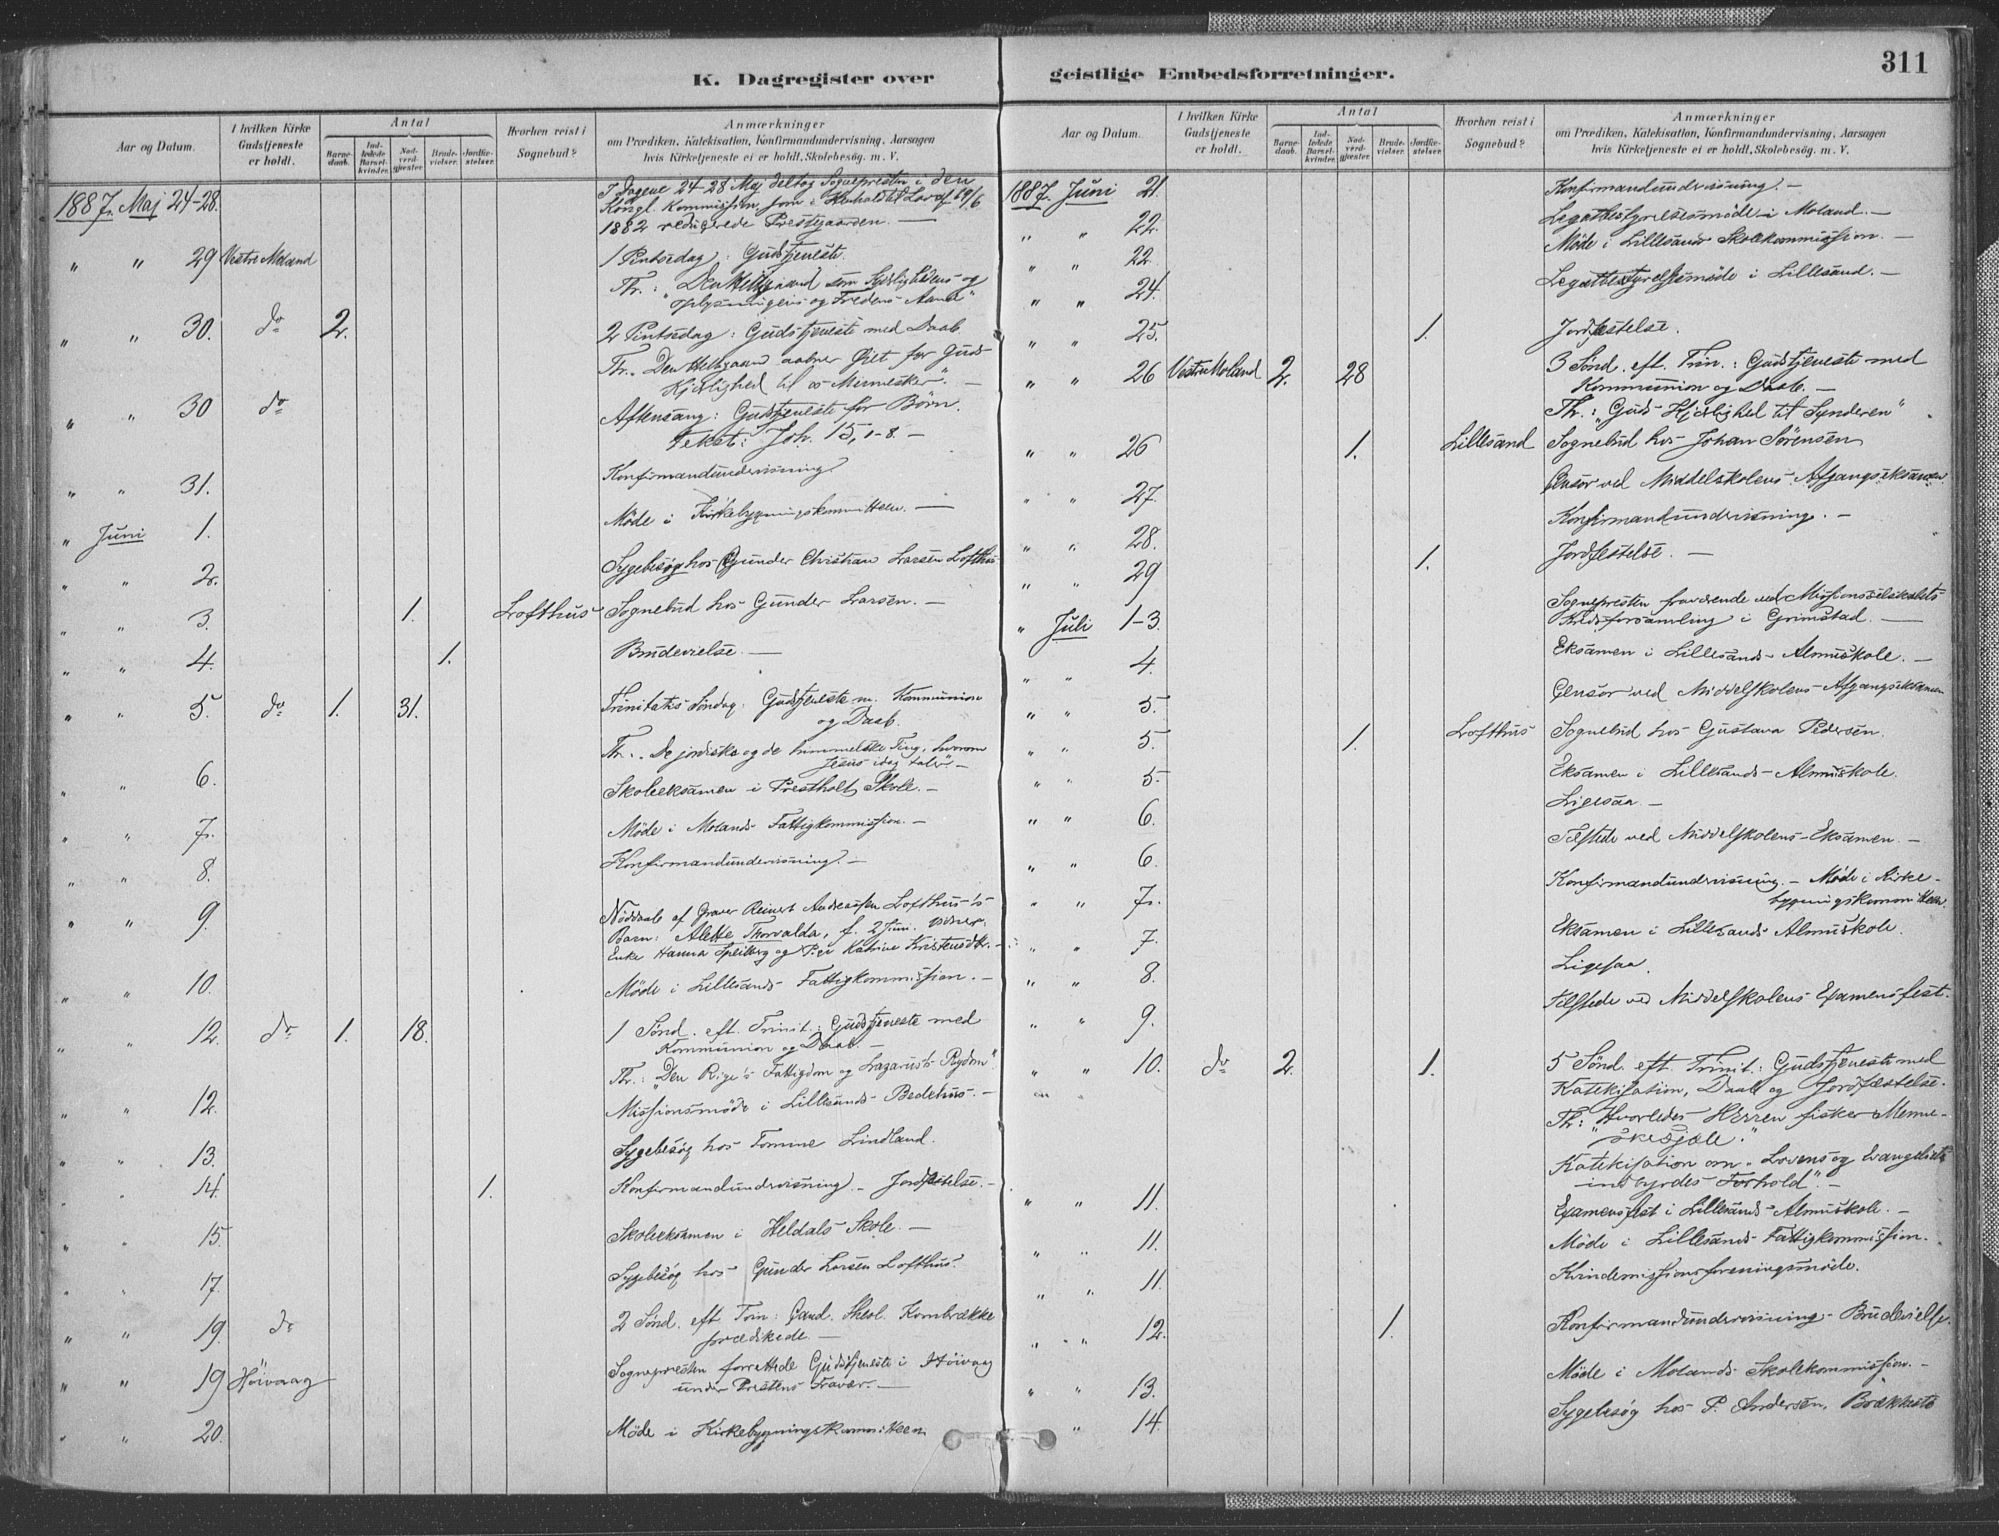 311
K. Dagregister over
geistlige Embedsforretninger.
Aar og Datum.
I hvilken Kirke Gudstjeneste er holdt.
Antal
Barnedaab.
Indledede Barselkvinder.
Nadverdgjester.
Brudevielser.
Jordfæstelser.
Hvorhen reist i Sognebud?
Anmærkninger
om Prædiken, Katekisation, Konfirmandundervisning, Aarsagen
hvis Kirketjeneste ei er holdt, Skolebesøg. m. V.
1887. Maj 24-28. I Dagene 24-28 Maj deltog Sognepresten i den
Kongl. Kommission, som i Henhold til Lov af 19/6
1882 regulerede Prestegaarden. —
" " 29 Vestre Moland 1 Pintsedag: Gudstjeneste.
Th.: "Den Helligaand som Sydlighedens og
Oplysningens og Fredens Aand"
" " 30. do 2. 2 Pintsedag: Gudstjeneste med Daab.
Th. "Den Helligaand aabner Øiet for Guds
Kjærlighed til os Mennesker". —
" " 30 do Aftensang: Gudstjeneste for Børn.
Tekst: Joh. 15, 1-8. —
" " 31. Konfirmandundervisning
" Juni 1. Møde i Kirkebygningskomitteen. —
" " 2. Sygebesøg hos Gunder Christian Larsen Lofthus
" " 3. 1. Lofthus Sognebud hos Gunder Larsen. —
" " 4. 1. Brudevielse. —
" " 5. do 1. 31. Trinitatis Søndag: Gudstjeneste m. Kommunion
og Daab.
Th. "De jordiske og de himmelske Ting, hvorom
Jesus idag taler" —
" " 6. Skoleeksamen i Prestholt Skole. —
" " 7. Møde i Molands Fattigkommission. —
" " 8. Konfirmandundervisning. —
" " 9. Nøddaab af Graver Reinert Andreassen Lofthus's
Barn: Alette Thorvalda, f. 2 Juni. Vidner:
Enke Hanna Speilberg og Pige Katrine Kristensdtr. —
" " 10. Møde i Lillesands Fattigkommission. —
" " 12. do 1. 18. 1 Sønd. eft. Trinit.: Gudstjeneste med
Kommunion og Daab. —
Th.: "Den Rige's Fattigdom og Lazarus's Rigdom"
" " 12. Missionsmøde i Lillesands Bedehus. —
" " 13. Sygebesøg hos Tomine Lindland.
" 14. 1. Konfirmandundervisning. — Jordfæstelse. —
" " 15. Skoleeksamen i Heldals Skole. —
" " 17. Sygebesøg hos Gunder Larsen Lofthus.
" " 19. do 2 Sønd. eft Trin: Cand. Theol. Kornbrække
prædikede. —
" " 19 Høivaag Sognepresten forrettede Gudstjeneste i Høivaag
under Prestens Fravær. —
" " 20. Møde i Kirkebygningskomitteen
Aar og Datum.
I hvilken Kirke Gudstjeneste er holdt.
Antal
Barnedaab.
Indledede Barselkvinder.
Nadverdgjester.
Brudevielser.
Jordfæstelser.
Hvorhen reist i Sognebud?
Anmærkninger
om Prædiken, Katekisation, Konfirmandundervisning, Aarsagen
hvis Kirketjeneste ei er holdt, Skolebesøg. m. V.
1887. Juni 21. Konfirmandundervisning. —
" " 22. Legatbestyrelsesmøde i Moland. —
" " 22. Møde i Lillesands Skolekommission. —
" " 24. Legatbestyrelsesmøde i Lillesand. —
" " 25. 1. Jordfæstelse.
" " 26 Vestre Moland 2. 28 3 Sønd. eft. Trin.: Gudstjeneste med
Kommunion og Daab. —
Th.: "Guds Kjærlighed til Synderen"
" " 26 1. Lillesand Sognebud hos Johan Sørensen
" " 27. Censor ved Middelskolens Afgangseksamen
" " 28. Konfirmandundervisning. —
" " 29 1. Jordfæstelse. —
" Juli 1-3. Sognepresten fraværende ved Missionsselskabets
Kredsforsamling i Grimstad. —
" " 4. Eksamen i Lillesands Almuskole. —
" " 5. Censor ved Middelskolens Afgangseksamen
" " 5. 1. Lofthus Sognebud hos Gustava Pedersen.
" " 5. Eksamen i Lillesands Almuskole.
" " 6. Ligesaa —
" " 6. Tilstede ved Middelskolens Eksamen. —
" " 7. Konfirmandundervisning. — Møde i Kirke-
bygningskomitteen.
" " 7. Eksamen i Lillesands Almuskole.
" " 8. Ligesaa.
" " 9. Tilstede ved Middelskolens Examensfest.
" " 10. do 2. 1. 5 Sønd. eft. Trinit.: Gudstjeneste med
Katekisation, Daab og Jordfæstelse.
Th: "Hvorledes HErren fisker Menne-
skesjæle."
Katekisation om "Lovens og Evangeliets
indbyrdes Forhold". —
" " 11. Examensfest i Lillesands Almuskole. —
" " 11. Møde i Lillesands Fattigkommission.
" " 11. Kvindemissionsforeningsmøde.
" " 12. 1. Konfirmandundervisning — Brudevielse.
" " 13. Møde i Molands Skolekommission. —
" 14. Sygebesøg hos P. Andersen, Brækkestø